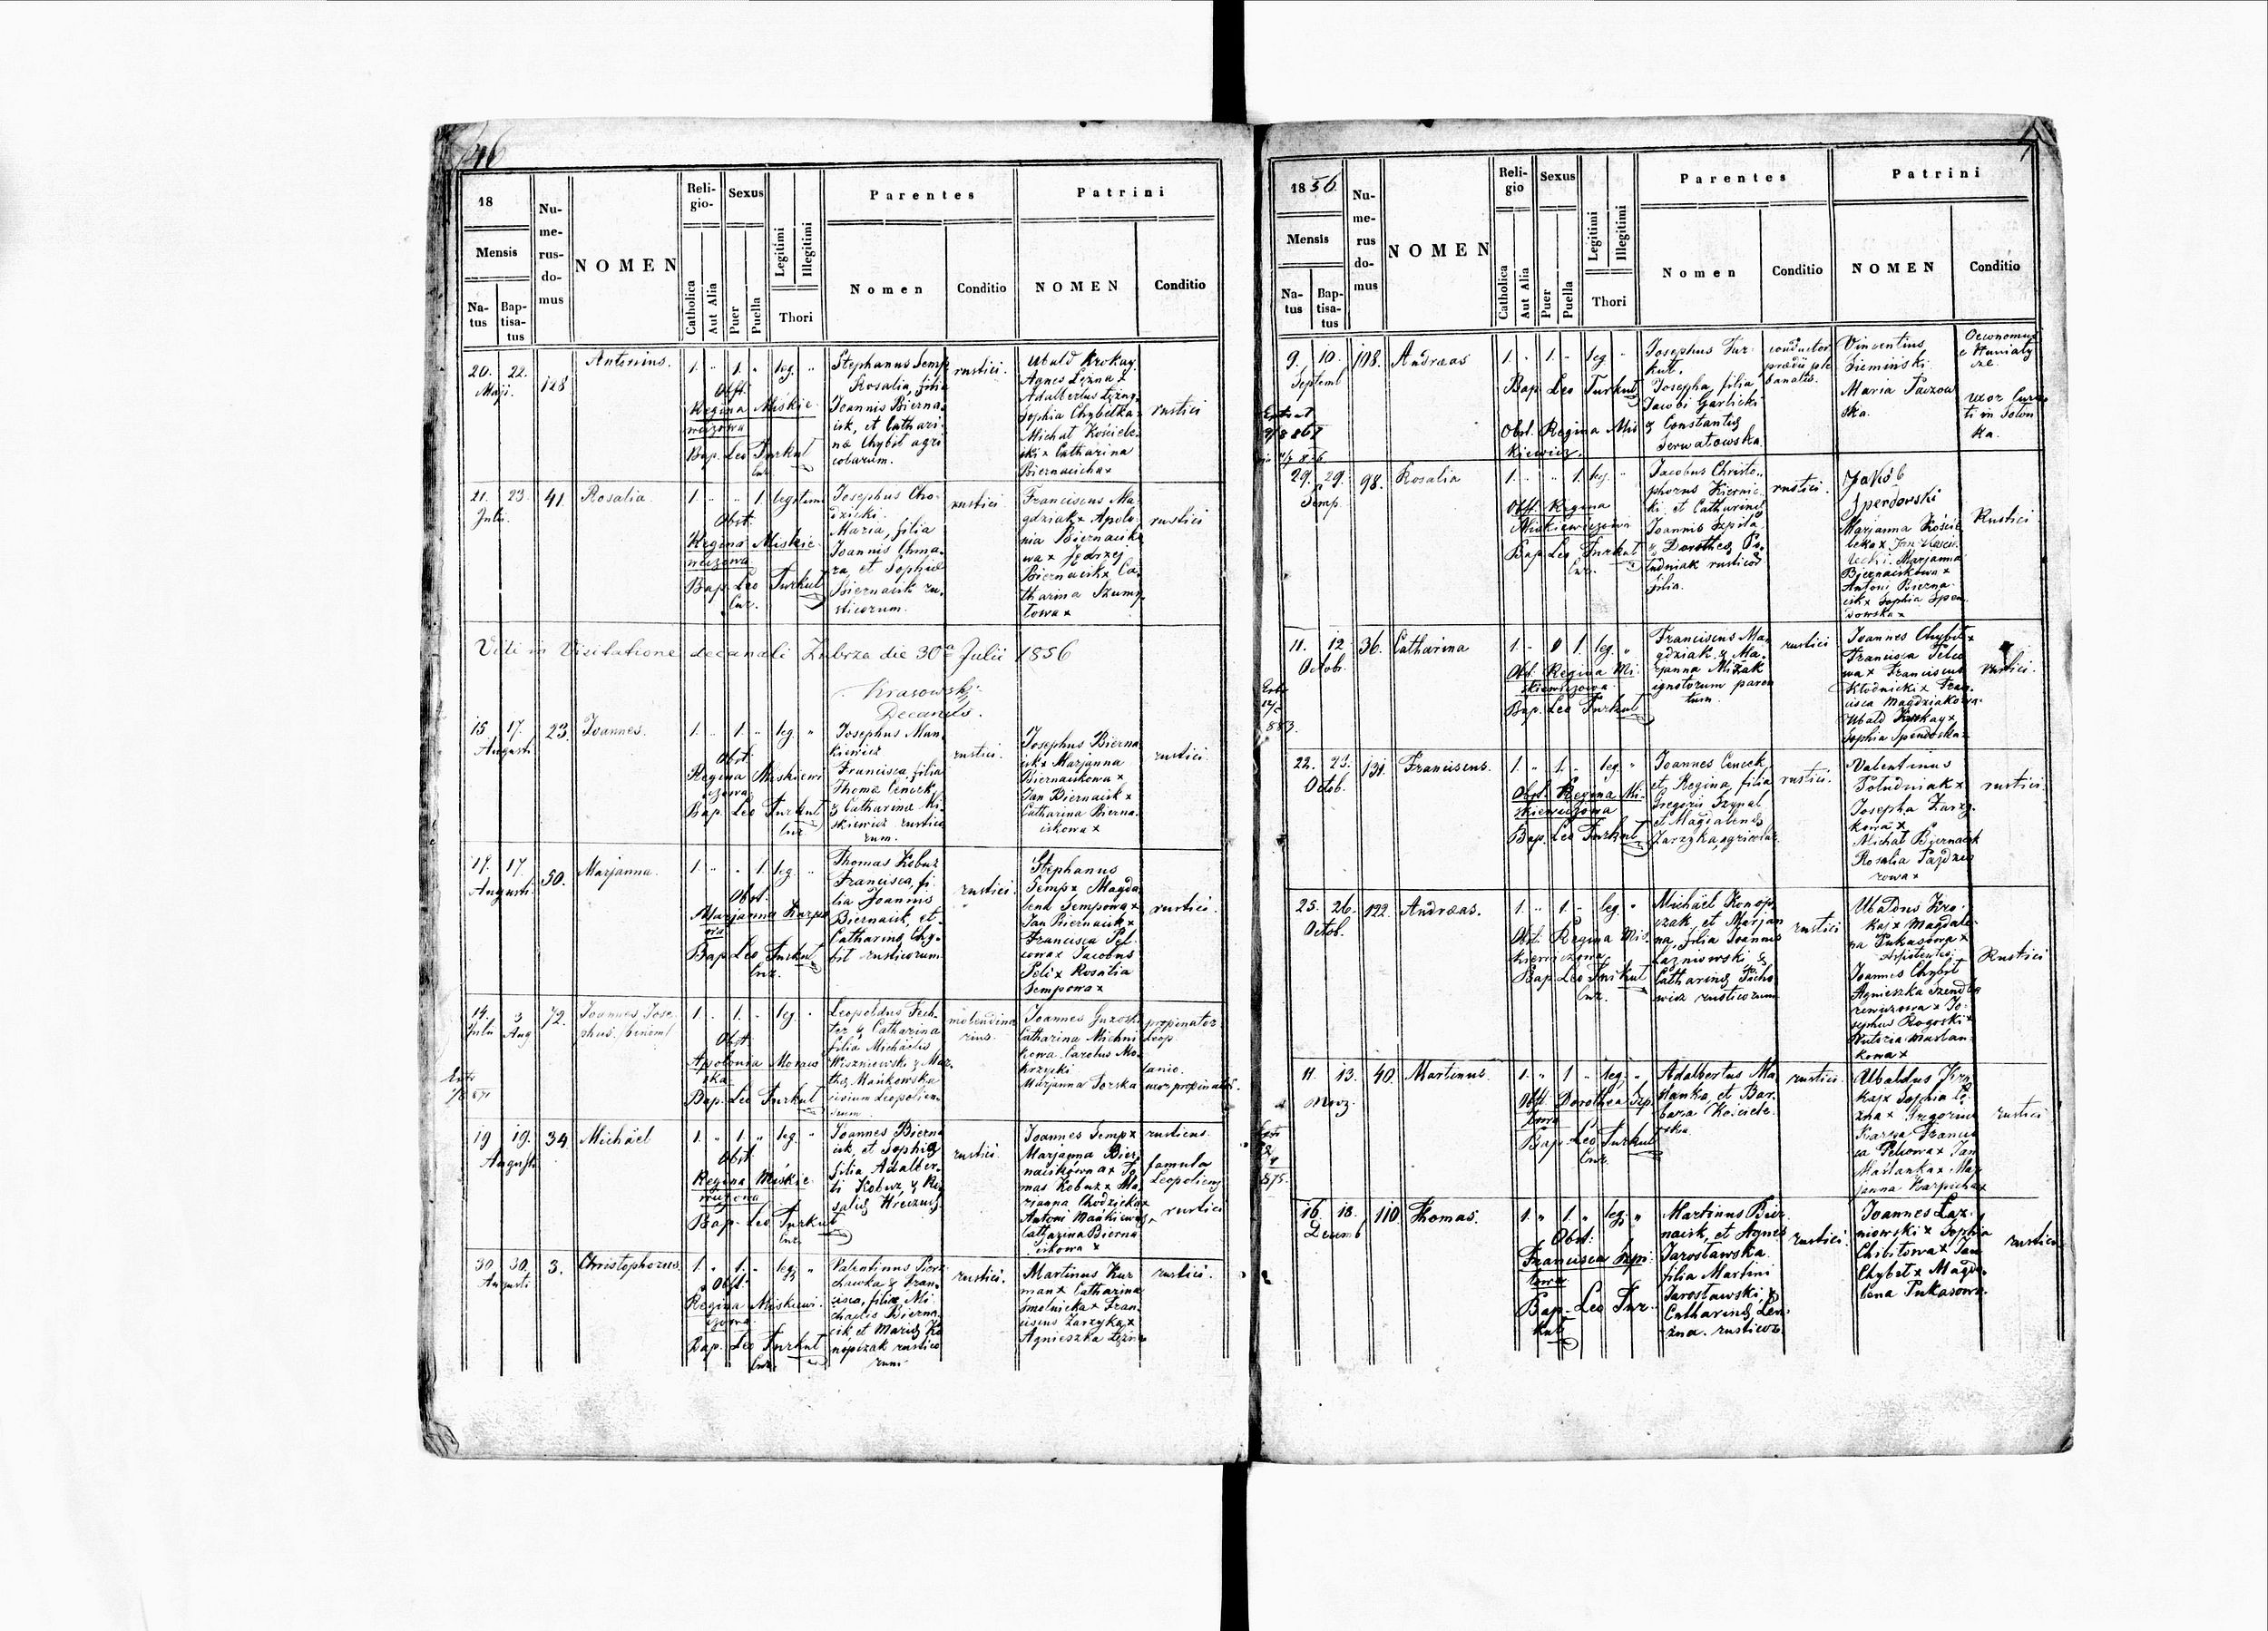 146
18
Mensis
Na-
tus
Bap-
tisa-
tus
Nu-
me-
rus-
do-
mus
NOMEN
Reli-
gio-
Catholica
Aut Alia
Sexus
Puer
Puella
Legitimi
Illegitimi
Thori
Parentes
Nomen
Conditio
Patrini
NOMEN
Conditio
20. 22.
Maji.
128
Antonius.
1. " 1. " leg. "
Obst.
Regina Miskie-
wiczowa
Bap. Leo Turkuł
Cur.
Stephanus Semp
Rosalia, filia
Joannis Bierna-
isk, et Cathari-
na Chybit agri
colarum.
rustici.
Ubald Krokay
Agnes Lężna x
Adalbertus Lężny
Sophia Chybitka
Michał Kościele-
ski x Catharina
Biernaicha x
rustici
21. 23.
Julii.
41.
Rosalia.
1. " " 1. legitim
Obst.
Regina Miskie-
wiczowa
Bap. Leo Turkuł
Cur.
Josephus Cho-
dzicki.
Maria, filia
Joannis Chma-
ra, et Sophiae
Biernaisk ru-
sticorum.
rustici
Franciscus Ma-
gdziak x Apolo-
nia Biernaisko
wa x Jędrzej
Biernaisk x Ca-
tharina Szump
towa x
rustici
Vidi in Visitatione decanali Zubrza die 30a Julii 1856
Krasowski
Decanus.
15. 17.
Augusti
23.
Joannes.
1. " 1. " leg. "
Obst.
Regina Miskiewi-
czowa
Bap. Leo Turkuł
Cur.
Josephus Man-
kiewicz
Francisca, filia
Thoma Cencek,
& Catharina Mi-
skiewicz rustico
rum.
rustici.
Josephus Bierna
isk x Marjanna
Biernaiskowa x
Jan Biernaisk x
Catharina Bierna-
iskowa x
rustici.
17. 17.
Augusti.
50.
Marjanna.
1. " " 1. leg. "
Obst.
Marjanna Karpo
wa
Bap. Leo Turkuł
Cur.
Thomas Kobuz
Francisca, fi-
lia Joannis
Biernaisk, et
Catharina Chy-
bit rusticorum
rustici.
Stephanus
Semp x Magda
lena Sempowa x
Jan Biernaisk x
Francisca Pel-
cowa x Jacobus
Pelc x Rosalia
Sempowa x
rustici.
14. 3
Julii Aug
72.
Joannes, Jose-
phus. /binom/
1. " 1. " leg. "
Obst.
Apolonia Moraw
ska
Bap. Leo Turkuł
Leopoldus Fech-
ter & Catharina
filia Michaelis
Wiszniewski & Mar-
tha Mańkowska
civium Leopolien-
sium
molendina
rius.
Joannes
Catharina Michni
kowa. Carolus Mo-
krzycki
Marjanna Torska
propinator
Leop.
lanio.
uxor propinator.
19 19.
Augusti
34
Michael
1. " 1. " leg. "
Obst.
Regina Miskie-
wiczowa
Bap. Leo Turkuł
Cur.
Joannes Bierna
isk, et Sophia
filia Adalber-
ti Kobuz & Ro-
salia
rustici.
Joannes Semp x
Marjanna Bier-
naiskowa x To-
mas Kobuz x Ma-
rjanna Chodzicka x
Antoni Mańkiewicz
Catharina Bierna
iskowa x
rusticus.
famula
Leopoliens
rustici
30 30.
Augusti
3.
Christophorus.
1. " 1. " leg. "
Obst.
Regina Miskiewi-
czowa
Bap. Leo Turkuł
Cur.
Valentinus Piers
chawka & Fran-
cisca, filia Mi-
chaelis Bierna-
isk et Maria Ko
nopczak rustico
rum
rustici.
Martinus Kur-
man x Catharina
Smolnicka x Fran-
ciscus Zarzyka x
Agnieszka Lężna
rustici.
1856.
Mensis
Na-
tus
Bap-
tisa-
tus
Nu-
me-
rus
do-
mus
NOMEN
Reli-
gio
Catholica
Aut Alia
Sexus
Puer
Puella
Legitimi
Illegitimi
Thori
Parentes
Nomen
Conditio
Patrini
NOMEN
Conditio
9. 10.
Septemb
108.
Andreas
1. " 1. " leg. "
Bap. Leo Turkuł
Obst. Regina Mis
kiewicz.
Josephus Tur-
kuł.
Josepha, filia
Jacobi Garlicki
& Constantia
Serwatowska.
conductor
praedii ple
banalis.
Vincentius
Siemiński.
Maria Paczow
ska.
Oeconomus
uxor
ti in Solon
ka.
29. 29.
Semp.
98.
Rosalia
1. " " 1. leg. "
Obst. Regina
Miskiewiczowa
Bap. Leo Turkuł
Cur.
Jacobus Christo-
phorus Kiernic-
ki, et Catharina
Joannis Szpila
& Dorothea Po-
łudniak rusticor
filia.
rustici.
Jakób
Sperdowski
Marjanna Kościele
lecka x Jan
Marjanna
Biernaiskowa x
Antoni Bierna-
isk x Sophia Sper
dowska x
Rustici
11. 12
Octob.
36.
Catharina
1. " 0 1. leg. "
Obst. Regina Mi-
skiewiczowa.
Bap. Leo Turkuł
Franciscus Ma-
gdziak & Ma-
rjanna Miżak
ignotorum paren
tum.
rustici
Joannes Chybit x
Francisca Pelco
wa x Franciscus
Kłodnicki x Fran-
cisca Magdziakowa
Ubald Krokay x
Sophia Sperdoska
rustici.
22. 23.
Octob.
131.
Franciscus.
1. " 1. " leg. "
Obst. Regina Mi-
skiewiczowa
Bap. Leo Turkuł
Joannes Cencek,
et, Regina, filia
Gregorii Szynal
et Magdalena
Zarzyka, agricolar.
rustici.
Valentinus
Południak x
Josepha Zarzy-
kowa x
Michał Biernaisk
Rosalia Pajdzio
rowa x
rustici.
25. 26.
Octob.
122.
Andreas.
1. " 1. " leg. "
Obst. Regina Mis-
kiewiczowa.
Bap. Leo Turkuł
Cur.
Michael Konop
czak, et Marjan
na, filia Joannis
Łazniowski &
Catharina Picho
wicz rusticorum
rustici
Ubaldus Kro-
kaj x Magdale-
na Pukasowa x
Assistentes
Joannes Chybit
Agnieszka
Jo-
sephus Rogoski x
Maślan-
kowa x
Rustici
11. 13.
Novz.
40.
Martinus.
1. " 1 " leg. "
Obst. Dorothea Szp
Bap. Leo Turkuł
Cur.
Adalbertus Ma-
ślanka, et Bar-
bara Kościele-
cka.
rustici.
Ubaldus Kro
kaj x Sophia Lę-
żna x Gregorius
Karpa Francis
ca Pelcowa x Jan
Maślanka x Mar-
janna Karpicha x
rustici
16. 18.
Decemb
110.
Thomas.
1. " 1. " leg. "
Obst:
Francisca Szpi-
lowa
Bap. Leo Tur-
kuł
Martinus Bier-
naisk, et Agnes
Jarosławska.
filia Martini
Jarosławski, &
Catharina Lęż-
żna. rusticor.
rustici.
Joannes Łaz-
niowski x Sophia
Chibitowa x Jan
Chybit x Magda-
lena Pukasowa.
rustici